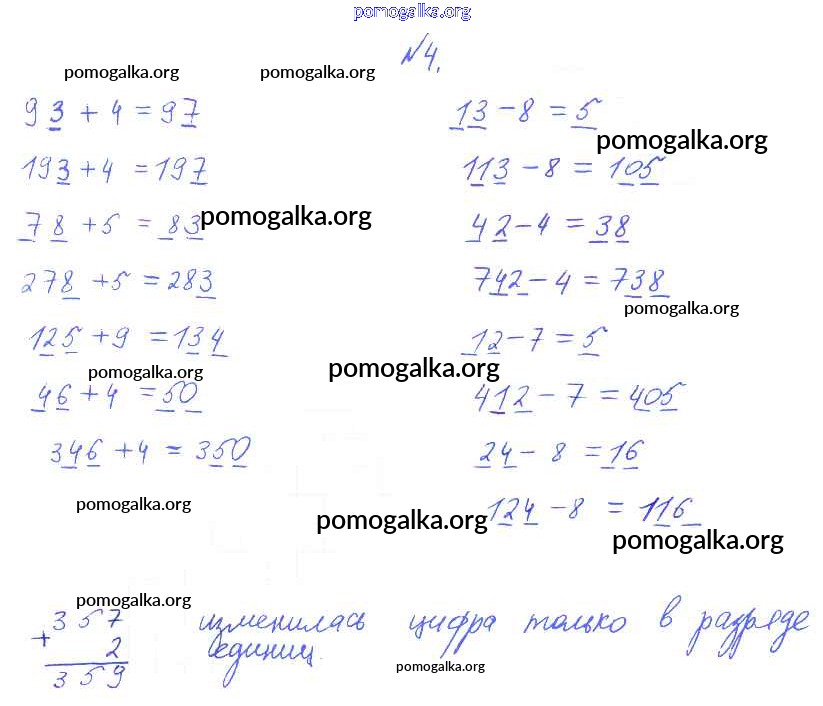 pomogalka.org
№4.
pomogalka.org pomogalka.org
93 + 4 = 97
13 - 8 = 5
pomogalka.org
193 + 4 = 197
113 - 8 = 105
78 + 5 = 83
pomogalka.org
42 - 4 = 38
278 + 5 = 283
742 - 4 = 738
pomogalka.org
125 + 9 = 134
12 - 7 = 5
pomogalka.org
pomogalka.org
46 + 4 = 50
412 - 7 = 405
346 + 4 = 350
24 - 8 = 16
pomogalka.org
pomogalka.org
124 - 8 = 116
pomogalka.org
pomogalka.org
357
+
2
359
изменилась цифра только в разряде
единиц.
pomogalka.org